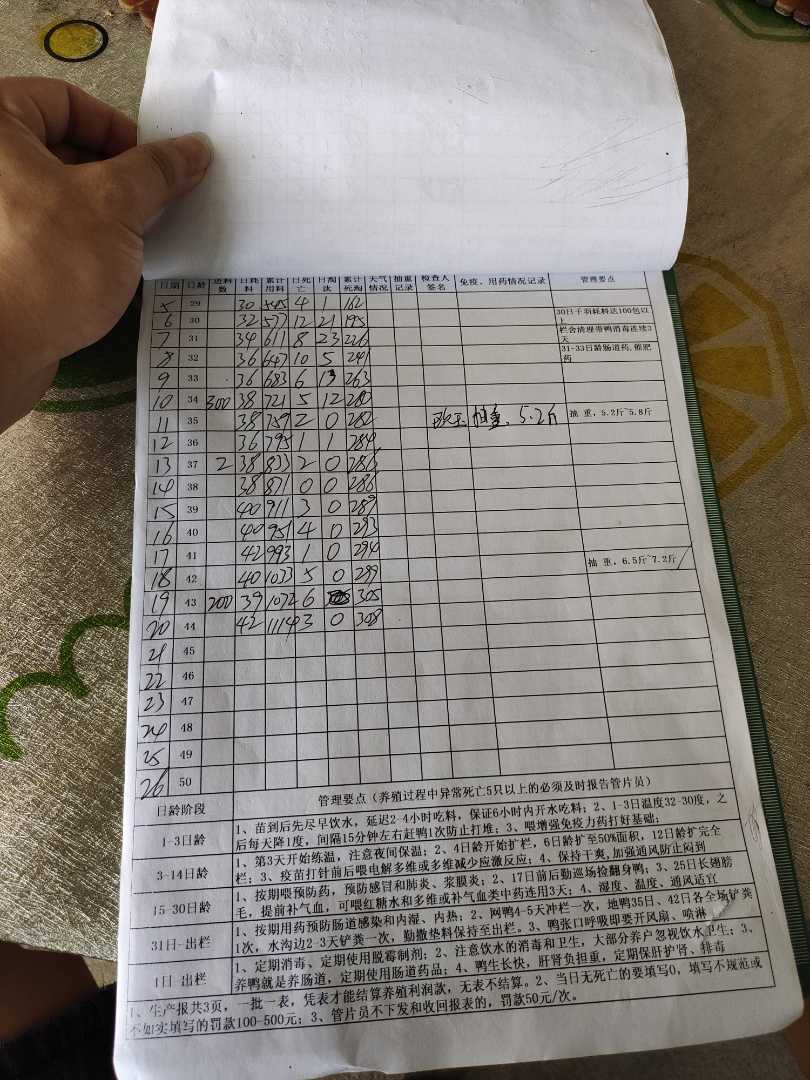 日期 日龄 进料数 日耗料 累计用料 日死亡 日淘汰 累计死淘 天气情况 抽重记录 检查人签名 免疫、用药情况记录 管理要点
5 29 30 545 4 1 162
6 30 32 577 12 21 195 30日千羽耗料达100包以上
7 31 34 611 8 23 226 栏舍清理带鸭消毒连续3天
8 32 36 647 10 5 241 31-33日龄肠道药,催肥药
9 33 36 683 6 13 263
10 34 300 38 721 5 12 280
11 35 38 759 2 0 282 抽重、5.2斤 抽 重，5.2斤~5.8斤
12 36 36 795 1 1 284
13 37 2 38 833 2 0 286
14 38 38 871 0 0 286
15 39 40 911 3 0 289
16 40 40 951 4 0 293
17 41 42 993 1 0 294 抽 重，6.5斤~7.2斤
18 42 40 1033 5 0 299
19 43 200 39 1072 6 305
20 44 42 1114 3 0 308
21 45
22 46
23 47
24 48
25 49
26 50
日龄阶段 管理要点（养殖过程中异常死亡5只以上的必须及时报告管片员）
1-3日龄 1、苗到后先尽早饮水，延迟2-4小时吃料，保证6小时内开水吃料；2、1-3日温度32-30度，之
后每天降1度，间隔15分钟左右赶鸭1次防止打堆；3、喂增强免疫力药打好基础；
3-14日龄 1、第3天开始练温，注意夜间保温；2、4日龄开始扩栏，6日龄扩至50%面积，12日龄扩完全
栏；3、疫苗打针前后喂电解多维或多维减少应激反应；4、保持干爽,加强通风防止闷到
15-30日龄 1、按期喂预防药，预防感冒和肺炎、浆膜炎；2、17日前后勤巡场捡翻身鸭；3、25日长翅膀
毛，提前补气血，可喂红糖水和多维或补气血类中药连用3天；4、湿度、温度、通风适宜
31日-出栏 1、按期用药预防肠道感染和内湿、内热；2、网鸭4-5天冲栏一次，地鸭35日、42日各全场铲粪
1次，水沟边2-3天铲粪一次，勤撒垫料保持至出栏。3、鸭张口呼吸即要开风扇、喷淋
1日-出栏 1、定期消毒、定期使用脱霉制剂；2、注意饮水的消毒和卫生，大部分养户忽视饮水卫生；3、
养鸭就是养肠道，定期使用肠道药品；4、鸭生长快，肝肾负担重，定期保肝护肾、排毒
1、生产报共3页，一批一表，凭表才能结算养殖利润款，无表不结算。2、当日无死亡的要填写0，填写不规范或
不如实填写的罚款100-500元；3、管片员不下发和收回报表的，罚款50元/次。